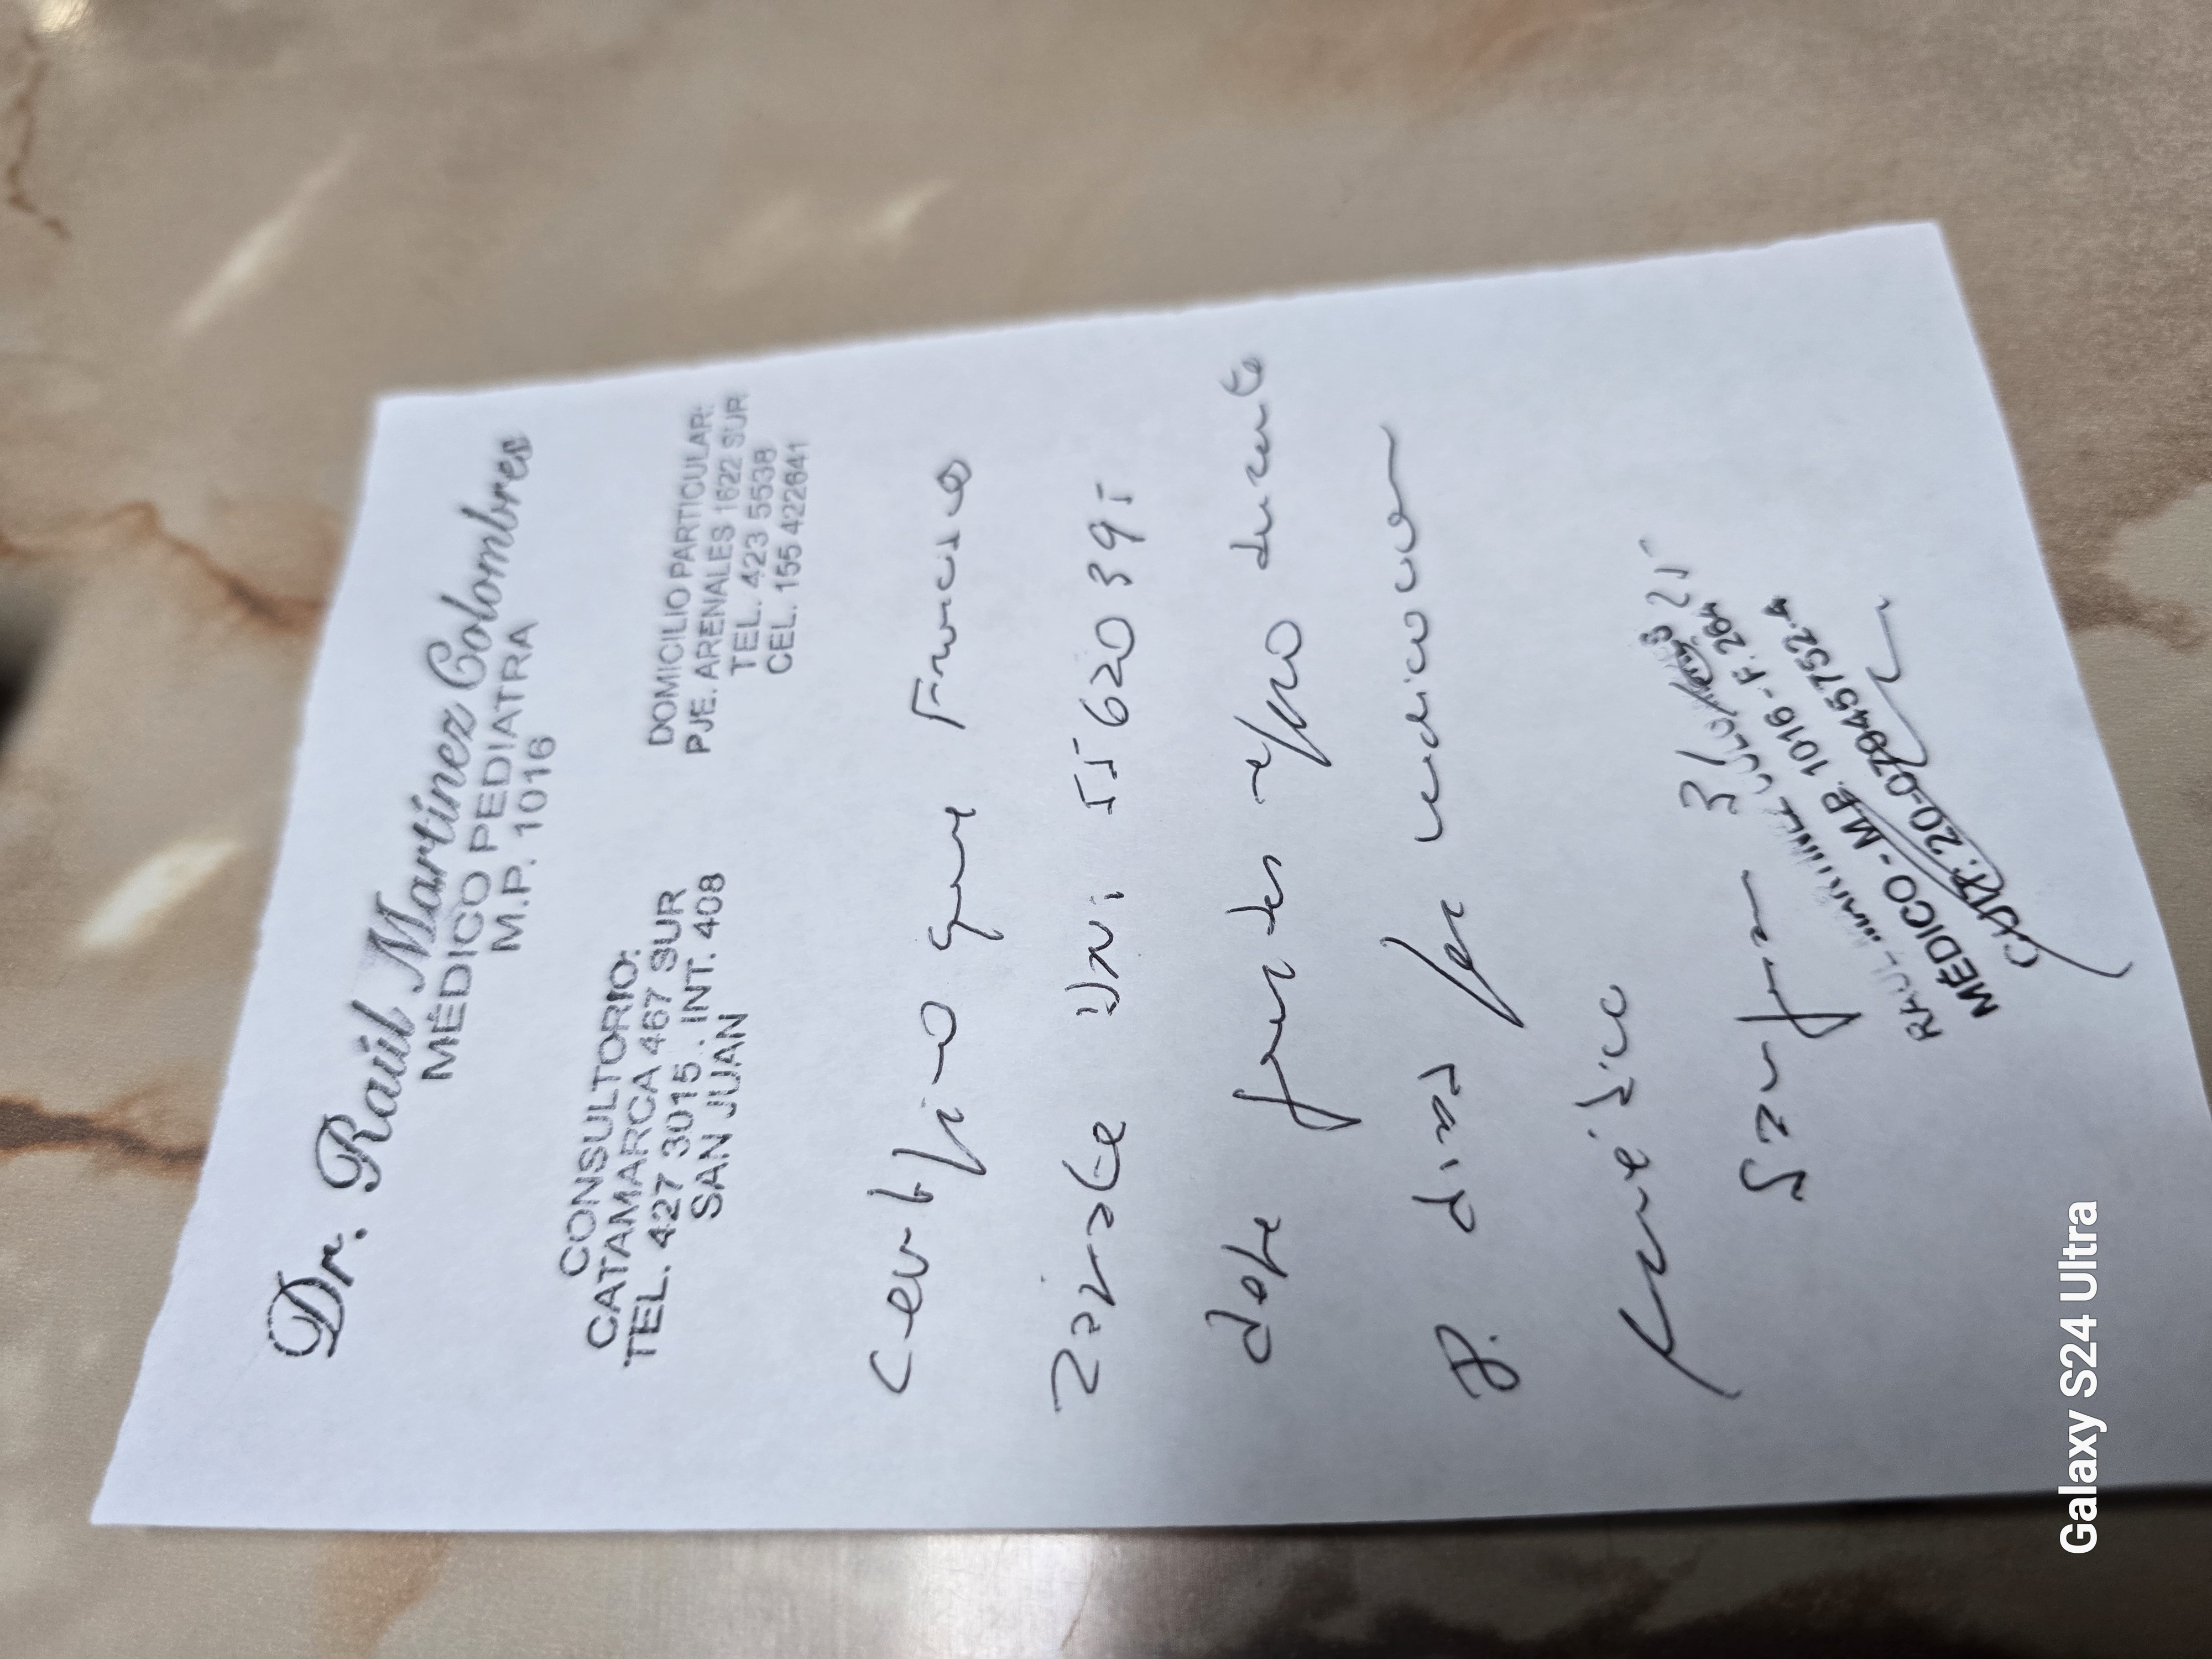 Dr. Raúl Martínez Colombres
MÉDICO PEDIATRA
M.P. 1016
CONSULTORIO:
CATAMARCA 467 SUR
TEL. 427 3015 . INT. 408
SAN JUAN
DOMICILIO PARTICULAR:
PJE. ARENALES 1622 SUR
TEL. 423 5538
CEL. 155 422641
Certifico que Francisco
Zarate DNI 55620395
debe guardar reposo durante
dias por
San Juan 3/ 25
RAUL MARTINEZ
MÉDICO - M.P. 1016 - F. 264
CUIT: 20-07945752-4
Galaxy S24 Ultra